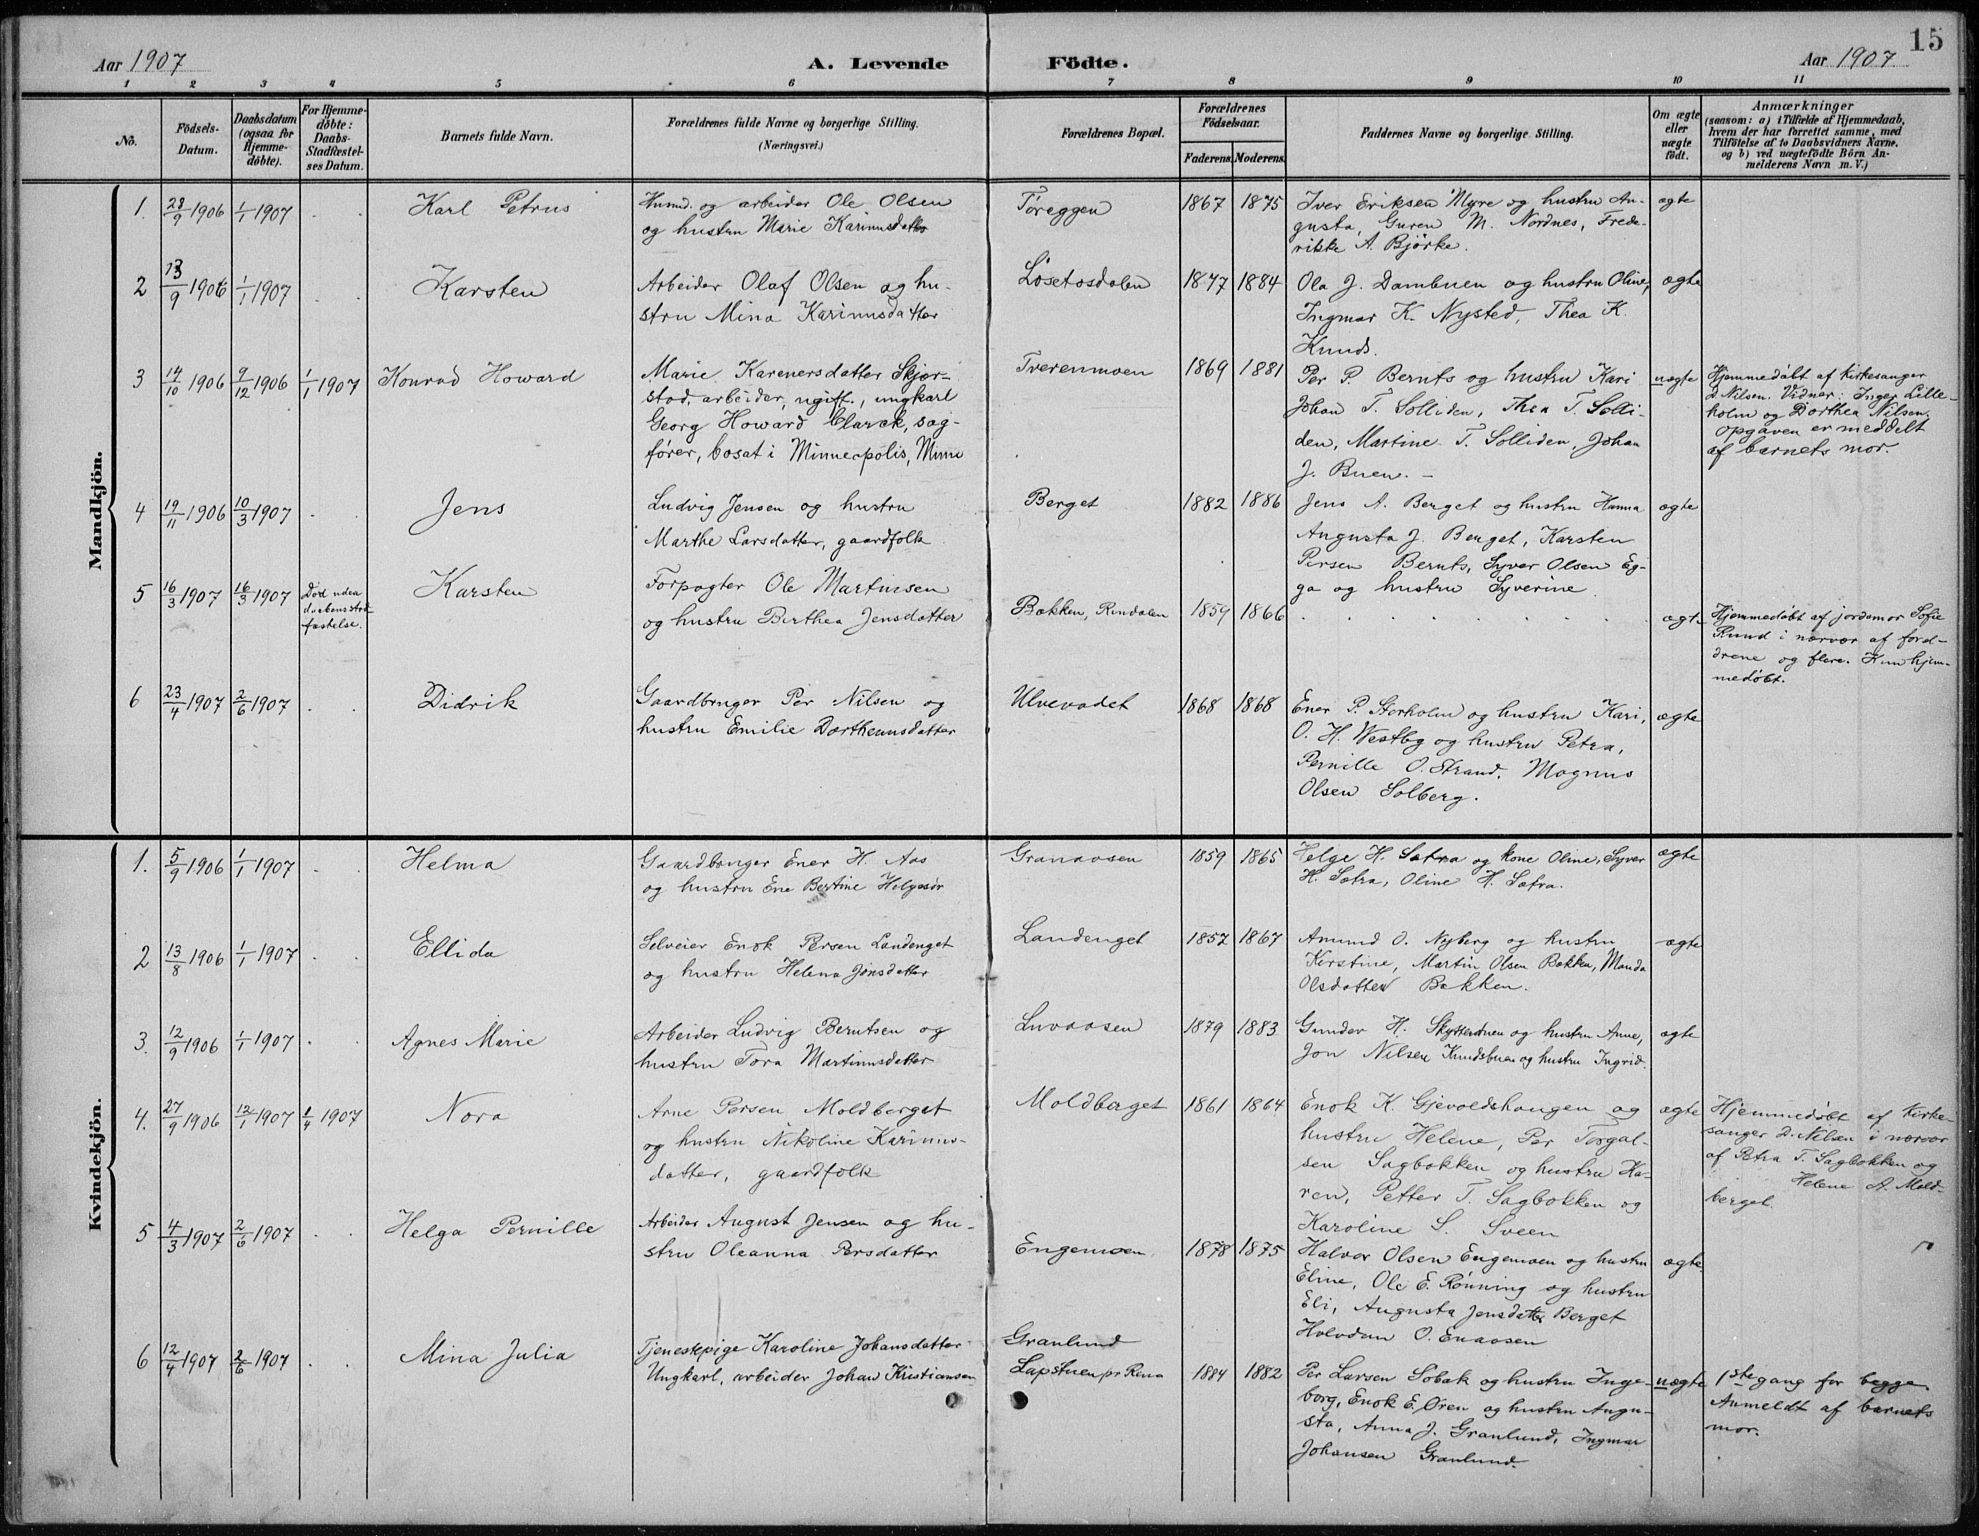 15
Aar 1907
A. Levende Födte.
Aar 1907
1 2 3 4 5 6 7 8 9 10 11
No.
Födsels-
Datum.
Daabsdatum
(ogsaa for
Hjemme-
døbte).
For Hjemme-
døbte:
Daabs-
Stadfæstel-
ses Datum.
Barnets fulde Navn.
Forældrenes fulde Navne og borgerlige Stilling.
(Næringsvei.)
Forældrenes Bopæl.
Forældrenes
Födselsaar.
Faderens. Moderens.
Faddernes Navne og borgerlige Stilling.
Om ægte
eller
uægte
födt.
Anmærkninger
(saasom: a) i Tilfælde af Hjemmedaab,
hvem der har forrettet samme, med
Tilföielse af to Daabsvidners Navne.
og b) ved uægtefödte Börn An-
melderens Navn m. V.)
Mandkjön.
1. 23/9 1906 1/1 1907 . . Karl Petrus
Husmd. og arbeider Ole Olsen
og hustru Marie Karinusdatter
Töreggen 1867 1875
Iver Eriksen Myre og hustru Au-
gusta, Guren M. Nordnes, Frede-
rikke A. Björke.
ægte
2 13/9 1906 1/1 1907 . . Karsten
Arbeider Olaf Olsen og hu-
stru Mina Karinusdatter
Løsetosdalen 1877 1884
Ola J. Dambuen og hustru Oline,
Ingmar K. Nysted, Thea K.
Knuds.
ægte
3 14/10 1906 9/12 1906 1/1 1907 Konrad Howard
Marie Karenersdatter Skjær-
stad, arbeider, ugift., ungkarl
Georg Howard Clarck, sag-
fører, bosat i Minneapolis, Minn
Tverenmoen 1869 1881
Per P. Bernts og hustru Kari
Johan T. Solliden, Thea T. Solli-
den, Martine T. Solliden, Johan
J. Buen. -
uægte
Hjemmedøbt af kirkesanger
D. Nilsen. Vidner: Inger Lille-
holm og Dorthea Nilsen.
Opgaven er meddelt
af barnets mor.
4 19/11 1906 10/3 1907 . . Jens
Ludvig Jensen og hustru
Marthe Larsdatter, gaardfolk
Berget 1882 1886
Jens A. Berget og hustru Hanna
Augusta J. Berget, Karsten
Persen Bernts, Syver Olsen Eg-
ga og hustru Syverine.
ægte
5 16/3 1907 16/3 1907 Død uden
daabens stad
fæstelse. Karsten
Forpagter Ole Martinsen
og hustru Berthea Jensdatter
Bakken, Rindalen 1859 1866 . . . . . . . . ægte
Hjemmedøbt af jordemor Sofie
Rund i nærvær af foræl-
drene og flere. Kun hjem-
medøbt.
6 23/4 1907 2/6 1907 . . Didrik
Gaardbruger Per Nilsen og
hustru Emilie Dortheausdatter
Ulvevadet 1868 1868
Ener P. Storholm og hustru Kari,
O. H. Westby og hustru Petra,
Pernille O. Strand. Magnus
Olsen Solberg.
ægte
Kvindekjön.
1. 5/9 1906 1/1 1907 . . Helma
Gaardbruger Ener H. Aas
og hustru Ene Bertine Helgesdr
Granaasen 1859 1865
Helge H. Sætra og kone Oline, Syver
H. Sætra, Oline H. Sætra.
ægte
2 13/8 1906 1/1 1907 . . Ellida
Selveier Enok Persen Landenget
og hustru Helena Jonsdatter
Landenget 1857 1867
Amund O. Nyberg og hustru
Kerstine, Martin Olsen Bakken, Manda
Olsdatter Bakken.
ægte
3. 12/9 1906 1/1 1907 . . Agnes Marie
Arbeider Ludvig Berntsen og
hustru Tora Martinusdatter
Luvaasen 1879 1883
Gunder H. Skytterduen og hustru Anne,
Jon Nilsen Knudsbuen og hustru Ingrid.
ægte
4. 27/9 1906 12/1 1907 1/4 1907 Nora
Arne Persen Moldberget
og hustru Nikoline Karinus-
datter, gaardfolk
Moldberget 1861 1864
Enok K. Gjevoldshaugen og
hustru Helene, Per Torgal-
sen Sagbakken og hustru Ka-
ren, Petter T. Sagbakken og
Karoline S. Sveen
ægte
Hjemmedøbt af kirke-
sanger D. Nilsen i nærvær
af Petra T. Sagbakken og
Helene A. Mold-
berget.
5 4/3 1907 2/6 1907 . . Helga Pernille
Arbeider August Jensen og hu-
stru Oleanna Persdatter
Engemoen 1878 1875
Halvor Olsen Engemoen og hustru
Eline, Ole E. Rønning og hustru
Eli, Augusta Jensdatter Berget
Halvdan O. Enaasen
ægte.
6 12/4 1907 2/6 1907 . . Mina Julia
Tjenestepige Karoline Johansdatter
Ungkarl, arbeider Johan Kristiansen
Granlund
Lapstuen pr Rena 1884 1882
Per Larsen Søbak og hustru Inge-
borg, Enok E. Øren og hustru Augu-
sta, Anna J. Granlund, Ingmar
Johansen Granlund.
uægte
1ste gang for begge
Anmeldt af barnets
mor.